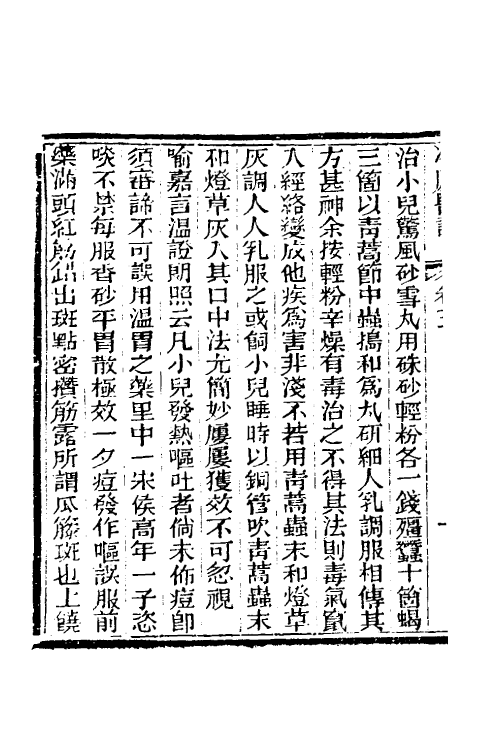 治小兒驚風砂雪丸用硃砂輕粉各一錢殭蠶十箇蝎
三箇以靑蒿節中蟲搗和爲丸研細人乳調服相傳其
方甚神余按輕粉辛燥有毒治之不得其法則毒氣竄
入經絡變成他疾爲害非淺不若用靑蒿蟲末和燈草
灰調人人乳服之或飼小兒睡時以銅管吹靑蒿蟲末
和燈草灰入其口中法尤簡妙屢屢獲效不可忽視
喻嘉言溫證朗照云凡小兒發熱嘔吐者倘未佈痘卽
須審諦不可誤用溫胃之藥里中一宋侯高年一子恣
啖不禁每服香砂平胃散極效一夕痘發作嘔誤服前
藥滿頭紅筋錯出斑點密攢筋露所謂瓜籐斑也上饒